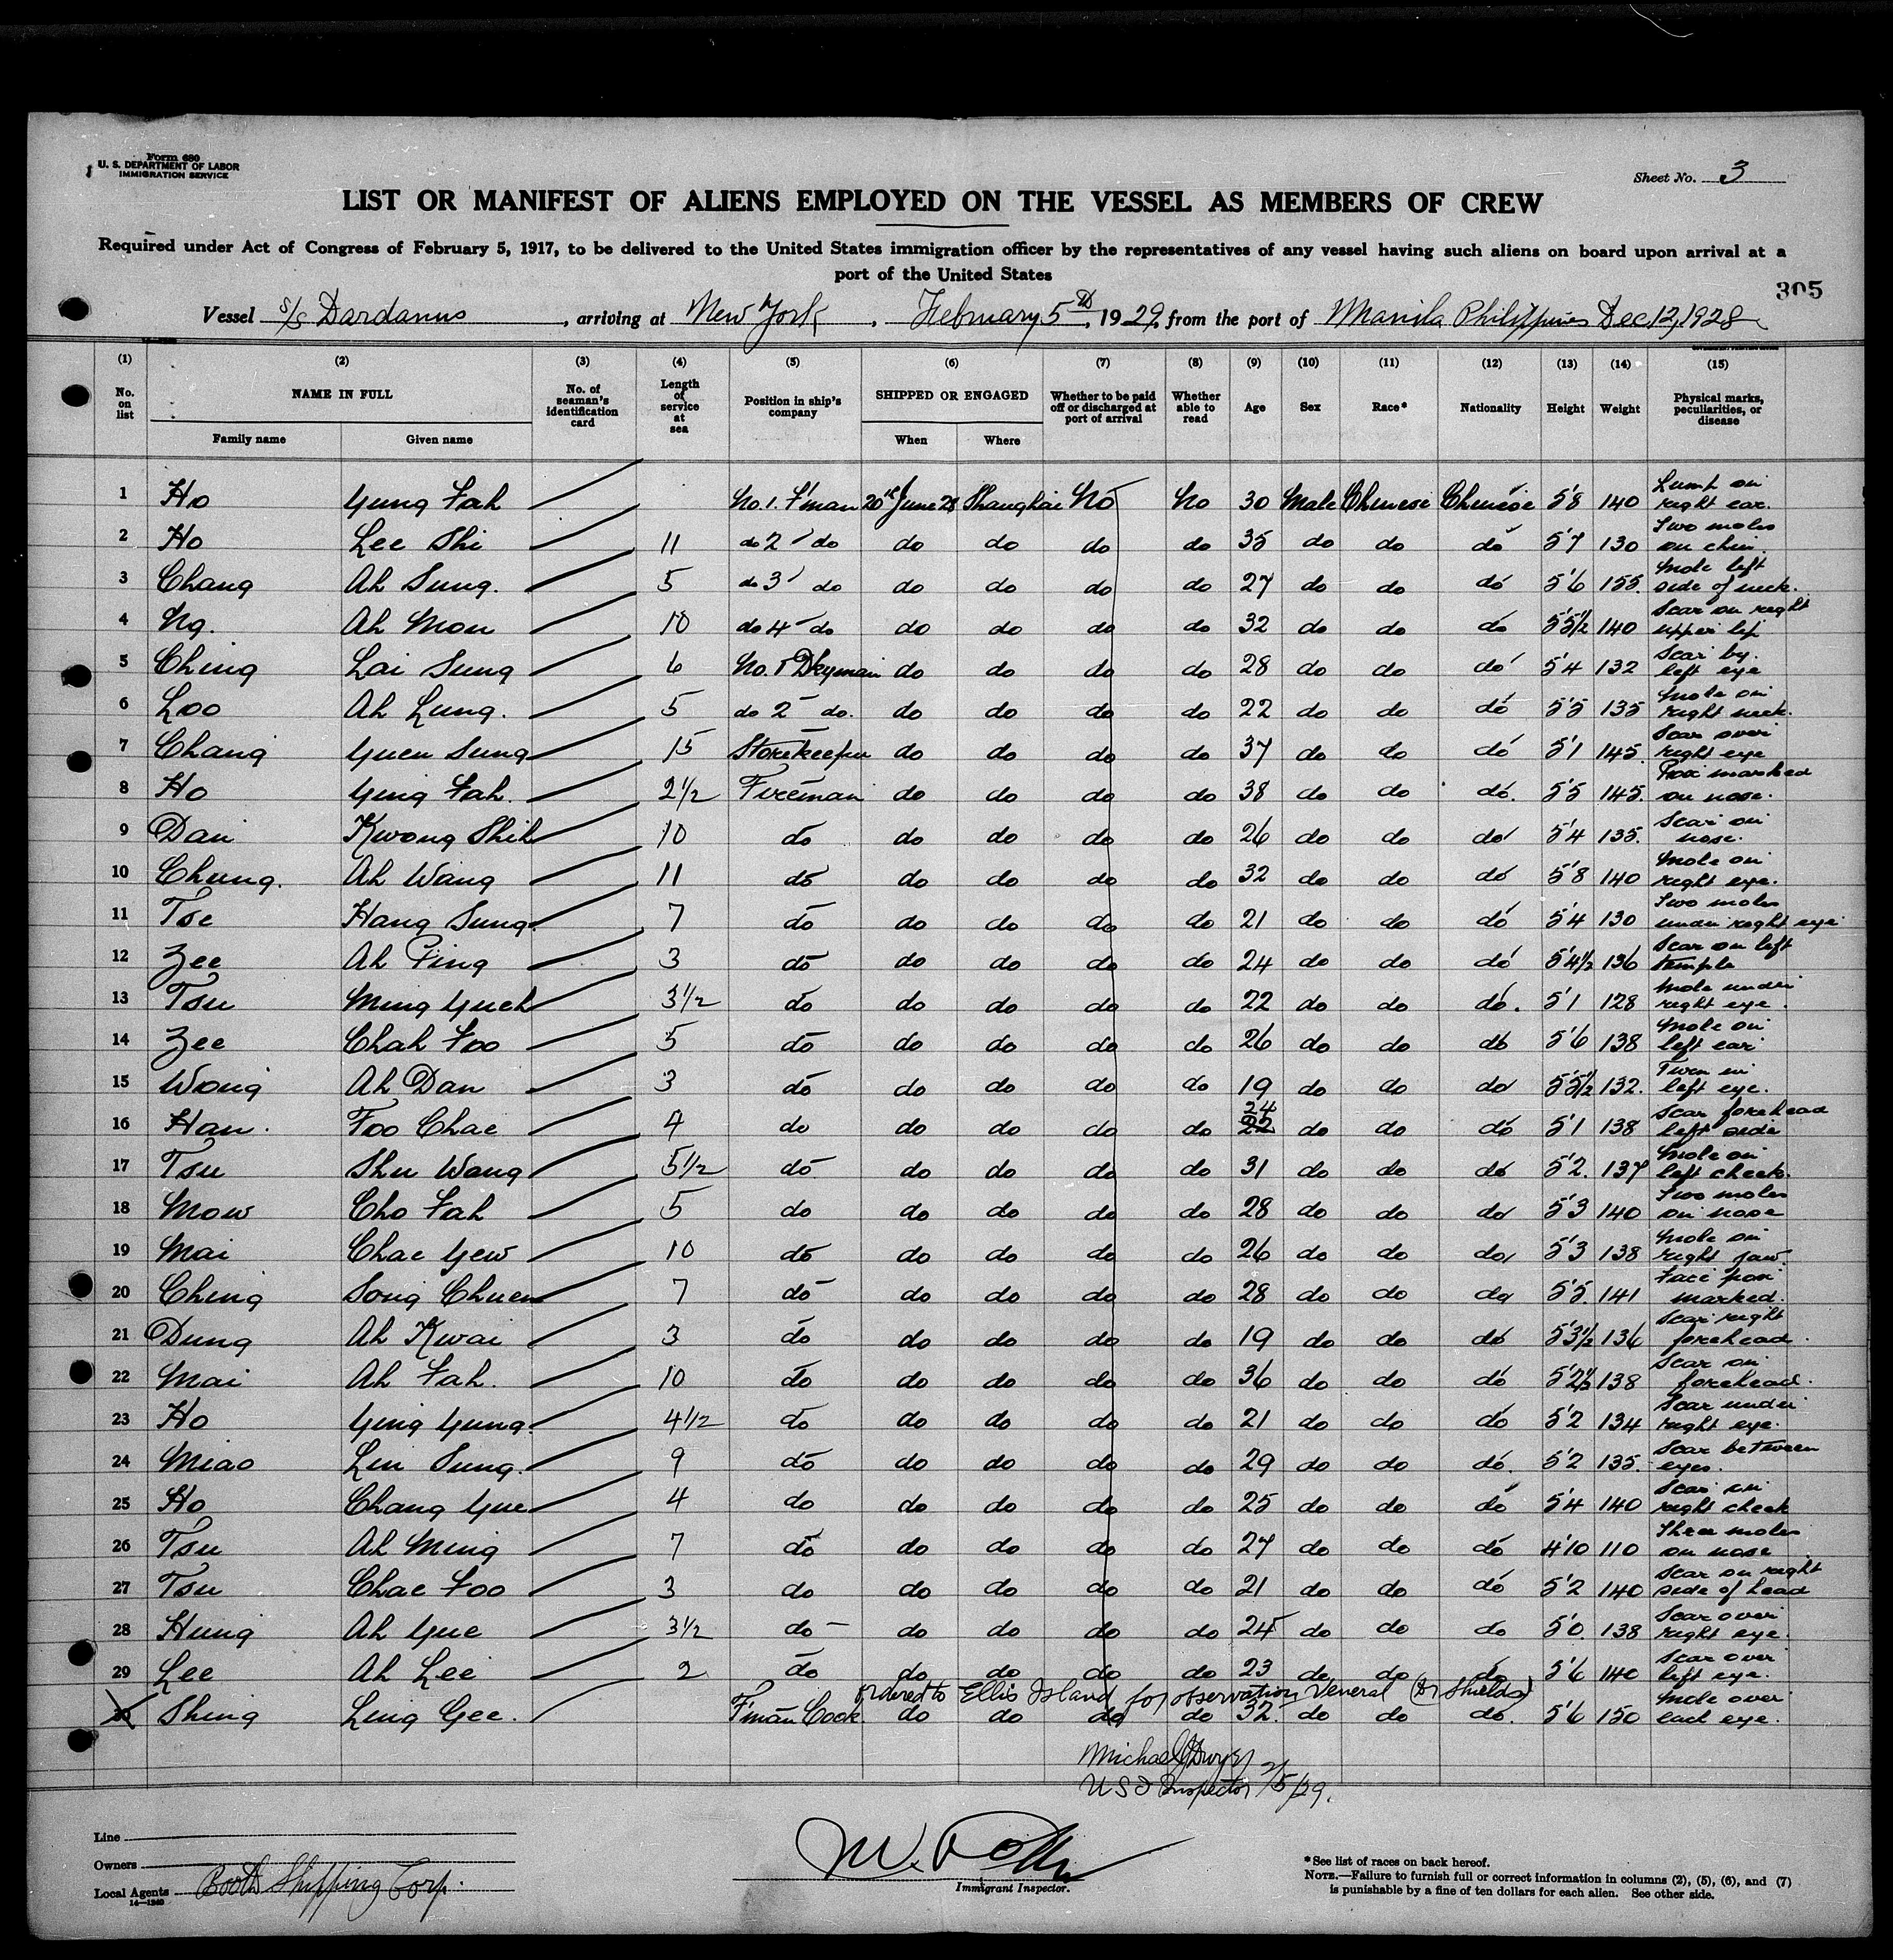 Form 680
U. S. DEPARTMENT OF LABOR
IMMIGRATION SERVICE
Sheet No. 3
LIST OR MANIFEST OF ALIENS EMPLOYED ON THE VESSEL AS MEMBERS OF CREW
Required under Act of Congress of February 5, 1917, to be delivered to the United States immigration officer by the representatives of any vessel having such aliens on board upon arrival at a
port of the United States
305
Vessel S/S Dardanus, arriving at New York, February 5th, 1929, from the port of Manila Philippines Dec. 12, 1928
(1) (2) (3) (4) (5) (6) (7) (8) (9) (10) (11) (12) (13) (14) (15)
No. on list NAME IN FULL Family name Given name No. of seaman's identification card Length of service at sea Position in ship's company SHIPPED OR ENGAGED When Where Whether to be paid off or discharged at port of arrival Whether able to read Age Sex Race* Nationality Height Weight Physical marks, peculiarities, or disease
1 Ho Yung Fah No. 1. F'man 20th June 28 Shanghai No No 30 Male Chinese Chinese 5'8 140 Lump on right ear.
2 Ho Lee Shi 11 do 2 do do do do do 35 do do do 5'7 130 Two moles on chin.
3 Chang Ah Sung. 5 do 3 do do do do do 27 do do do 5'6 155. Mole left side of neck.
4 Ng. Ah Mow 10 do 4 do do do do do 32 do do do 5'5½ 140 Scar on right upper lip
5 Ching Lai Sung 6 No. 1 Dkyman do do do do 28 do do do 5'4 132 Scar by. left eye
6 Loo Ah Lung. 5 do 2 do. do do do do 22 do do do 5'5 135 Mole on right neck.
7 Chang Yuen Sung 15 Storekeeper do do do do 37 do do do 5'1 145. Scar over right eye
8 Ho Ying Fah. 2½ Fireman do do do do 38 do do do. 5'5 145. Pox marked on nose.
9 Dan Kwong Shih 10 do do do do do 26 do do do 5'4 135. Scar on nose.
10 Chung. Ah Wang 11 do do do do do 32 do do do 5'8 140 Mole on right eye.
11 Tse Hang Sung. 7 do do do do do 21 do do do 5'4 130 Two moles under right eye
12 Zee Ah Ping 3 do do do do do 24 do do do 5'4½ 136 Scar on left temple
13 Tsu Ming Yueh 3½ do do do do do 22 do do do. 5'1 128 Mole under right eye.
14 Zee Chah Foo 5 do do do do do 26 do do do 5'6 138 Mole on left ear
15 Wong Ah Dan 3 do do do do do 19 do do do 5'5½ 132. Turn in left eye.
16 Han. Foo Chae 4 do do do do do 24 22 do do do 5'1 138 Scar forehead left side
17 Tsu Shu Wang 5½ do do do do do 31 do do do 5'2. 137 Mole on left cheek.
18 Mow Cho Fah 5 do do do do do 28 do do do 5'3 140 Two moles on nose
19 Mai Chae Yew 10 do do do do do 26 do do do 5'3 138 Mole on right jaw.
20 Ching Song Chuen 7 do do do do do 28 do do do 5'5. 141 Face pox marked.
21 Dung Ah Kwai 3 do do do do do 19 do do do 5'3½ 136 Scar right forehead.
22 Mai Ah Fah. 10 do do do do do 36 do do do 5'2½ 138 Scar on forehead.
23 Ho Ying Yung. 4½ do do do do do 21 do do do 5'2 134 Scar under right eye.
24 Miao Lin Sung. 9 do do do do do 29 do do do. 5'2 135. Scar between eyes.
25 Ho Chang Yue 4 do do do do do 25 do do do 5'4 140 Scar on right cheek
26 Tsu Ah Ming 7 do do do do do 27 do do do 4'10 110 Three moles on nose
27 Tsu Chae Foo 3 do do do do do 21 do do do 5'2 140 Scar on right side of head
28 Hung Ah Yue 3½ do do do do do 24 do do do 5'0. 138 Scar over right eye.
29 Lee Ah Lee 2 do do do do do 23 do do do 5'6 140 Scar over left eye.
Ordered to Ellis Island for observation Veneral (Dr Shields)
30 Shing Ling Gee. F'man Cook. do do do do 32. do do do. 5'6 150 Mole over each eye.
Michael J Dwyer
USI Inspector 2/5/29.
Line
Owners
Local Agents Booth Shipping Corp.
14—1240
Immigrant Inspector.
*See list of races on back hereof.
NOTE.—Failure to furnish full or correct information in columns (2), (5), (6), and (7)
is punishable by a fine of ten dollars for each alien. See other side.